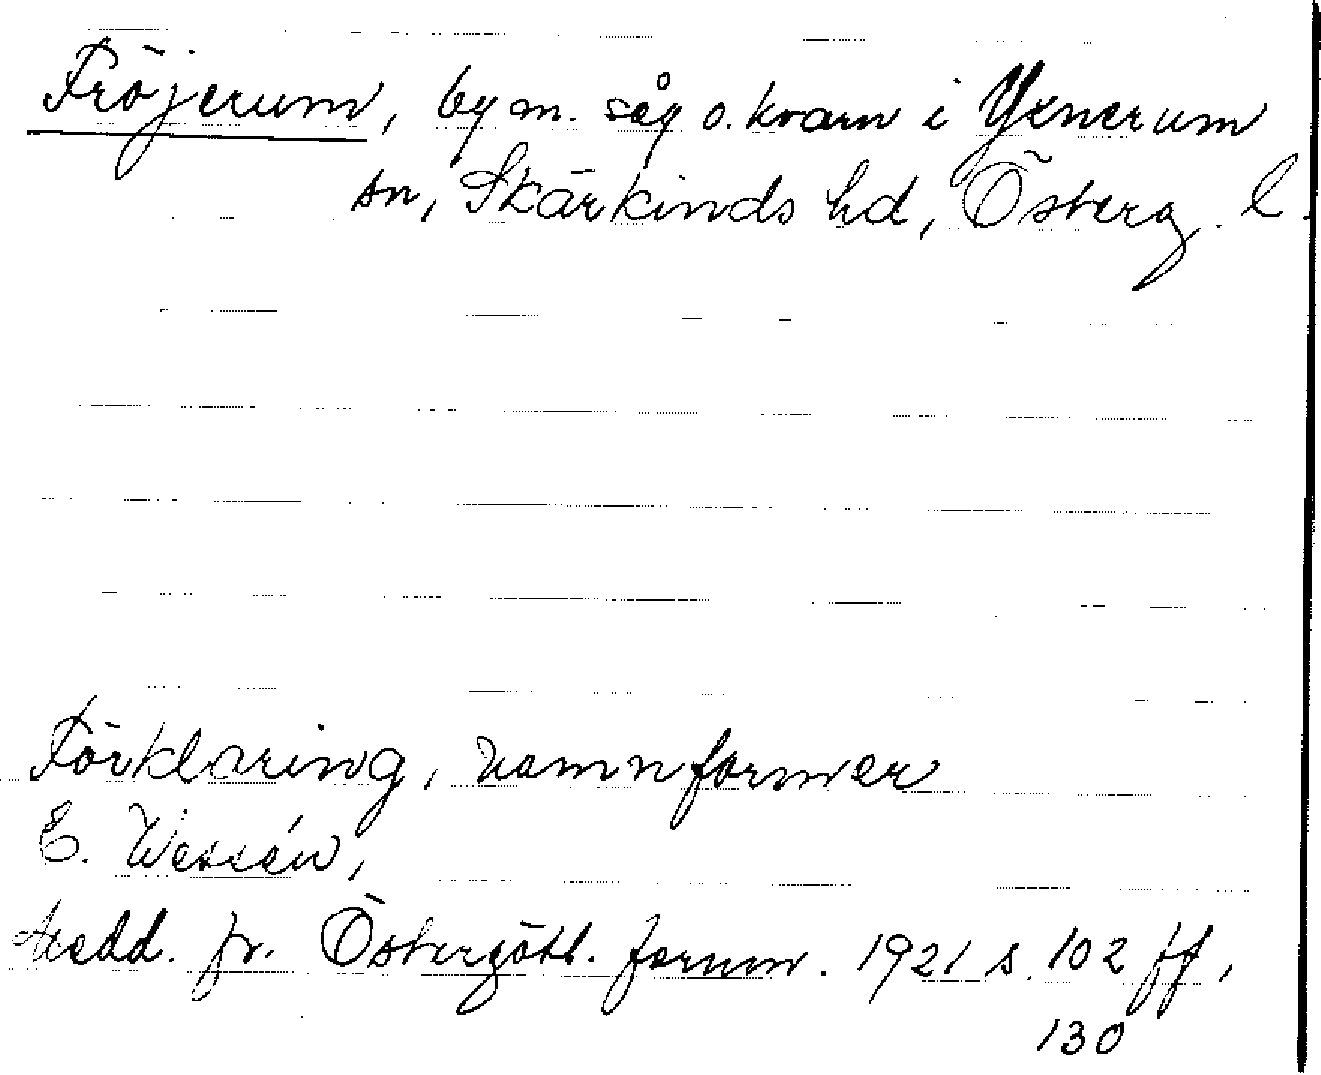 Fröjerum, by m. såg o. kvarn i Yxnerum
sn, Skärkinds hd, Österg. l.
Förklaring, namnformer
E. Wessén,
Medd. fr. Östergötl. fornm. 1921 s. 102 ff,
130